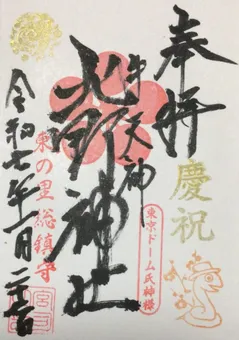 奉拝
慶祝
牛天神
北野神社
東京ドーム氏神様
東の里総鎮守
令和七年一月二十二日